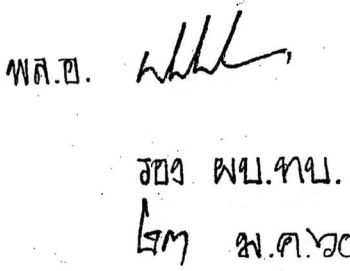 พล.อ.
รอง ผบ.ทบ.
ม.ค.๖๐